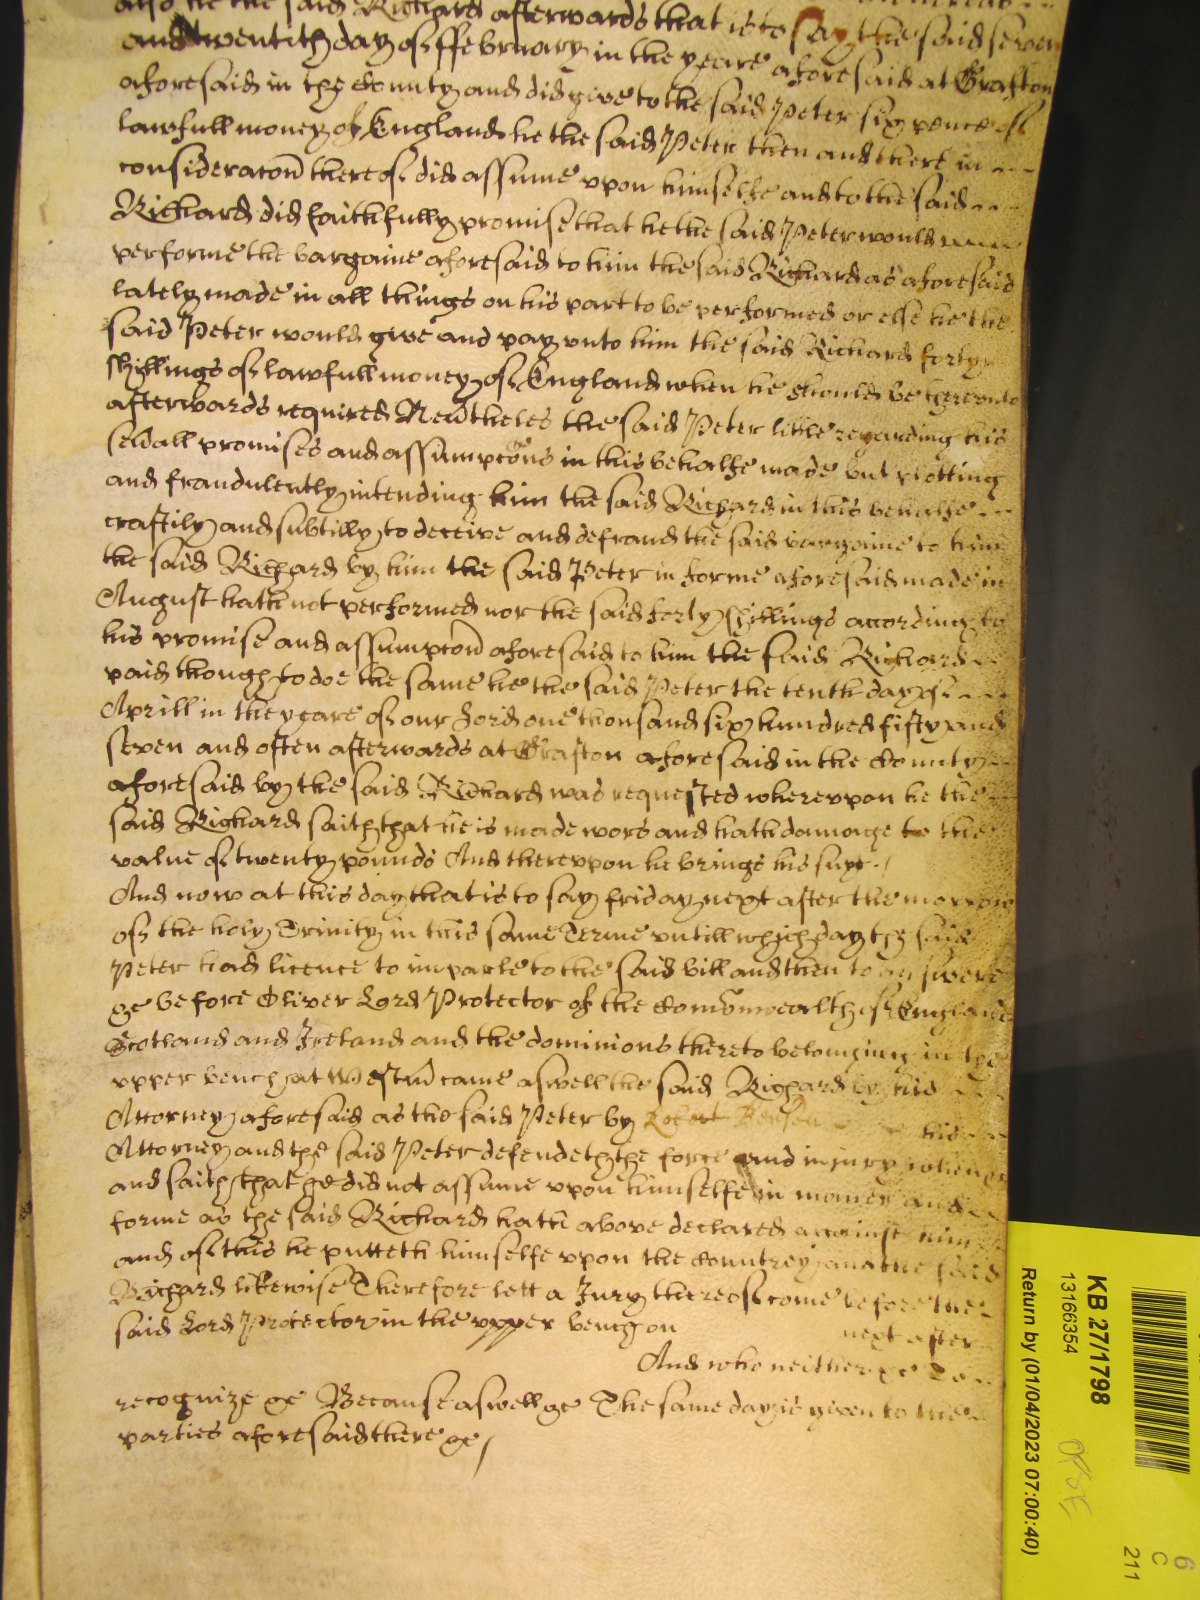 also he the said Richard afterwards that is to say the said seven
and twentith day of ffebruary in the yeare aforesaid at Grafton
aforesaid in the County and did give to the said Peter six pence of
lawfull money of England he the said Peter then and there in
consideracon thereof did assume upon himselfe and to the said
Richard did faithfully promise that he the said Peter would
performe the bargaine aforesaid to him the said Richard as aforesaid
lately made in all things on his part to be performed or else he the
said Peter would give and pay unto him the said Richard forty
shillings of lawfull money of England when he should be thereunto
afterwards required Nevtheles the said Peter little regarding his
sevall promises and assumpcons in this behalfe made but plotting
and fraudulently intending him the said Richard in this behalfe
craftily and subtilly to deceive and defraud the said bargaine to him
the said Richard by him the said Peter in forme aforesaid made in
August hath not performed nor the said forty shillings according to
his promise and assumpcon aforesaid to him the said Richard
paid though to doe the same he the said Peter the tenth day of
Aprill in the yeare of our Lord one thousand six hundred fifty and
seven and often afterwards at Grafton aforesaid in the County
aforesaid by the said Richard was requested whereupon he the
said Richard saith that he is made wors and hath damage to the
value of twenty pounds And thereupon he brings his suyt
And now at this day that is to say friday next after the morrow
of the holy Trinity in this same Terme untill which day the said
Peter had licence to imparle to the said bill and then to answere
&c before Oliver Lord Protector of the Comonwealth of England
Scotland and Ireland and the dominions thereto belonging in the
upper bench at Westm came aswell the said Richard by his
Attorney aforesaid as the said Peter by Robert his
Attorney and the said Peter defendeth the force and injury when &c
and saith that he did not assume upon himselfe in maner and
forme as the said Richard hath above declared against him
and of this he putteth himselfe upon the Countrey and the said
Richard likewise Therefore lett a Jury thereof come before the
said Lord Protector in the upper bench on next after
And who neither &c To
recognize &c Because aswell &c The same day is given to the
parties aforesaid there &c
KB 27/1798
13166354
Return by (01/04/2023 07:00:40)
6
C
211